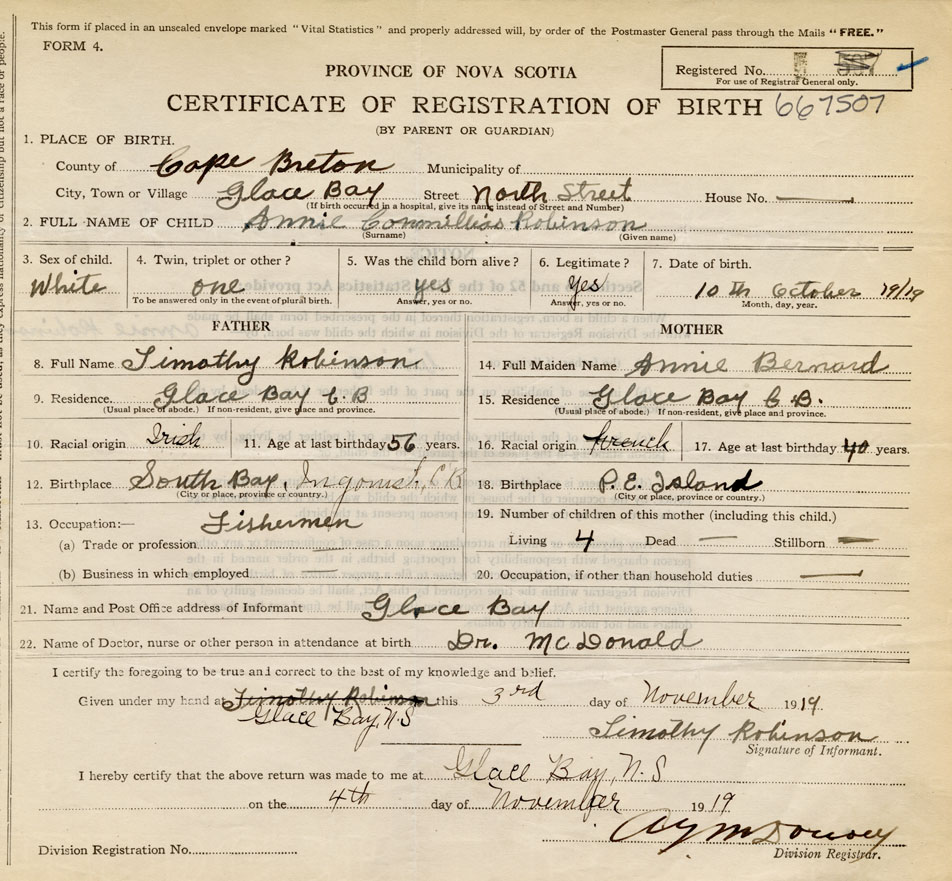 This form if placed in an unsealed envelope marked "Vital Statistics" and properly addressed will, by order of the Postmaster General pass through the Mails "FREE."
FORM 4.
Registered No.
For use of Registrar General only.
PROVINCE OF NOVA SCOTIA
CERTIFICATE OF REGISTRATION OF BIRTH 667507
(BY PARENT OR GUARDIAN)
1. PLACE OF BIRTH.
County of Cape Breton Municipality of
City, Town or Village Glace Bay Street North Street House No.
(If birth occurred in a hospital, give its name instead of Street and Number)
2. FULL NAME OF CHILD Annie Robinson
(Surname) (Given name)
3. Sex of child. 4. Twin, triplet or other? 5. Was the child born alive? 6. Legitimate? 7. Date of birth.
White one yes Yes 10th October 19/19
To be answered only in the event of plural birth. Answer, yes or no. Answer, yes or no. Month, day, year.
FATHER MOTHER
8. Full Name Timothy Robinson 14. Full Maiden Name Annie Bernard
9. Residence. Glace Bay C.B 15. Residence Glace Bay C.B.
(Usual place of abode.) If non-resident, give place and province. (Usual place of abode.) If non-resident, give place and province.
10. Racial origin Irish 11. Age at last birthday 56 years. 16. Racial origin french 17. Age at last birthday 40 years.
12. Birthplace South Bay, C B 18. Birthplace P.E. Island
(City or place, province or country.) (City or place, province or country.)
13. Occupation:— Fishermen 19. Number of children of this mother (including this child.)
(a) Trade or profession Living 4 Dead — Stillborn —
(b) Business in which employed 20. Occupation, if other than household duties —
21. Name and Post Office address of Informant Glace Bay
22. Name of Doctor, nurse or other person in attendance at birth Dr. McDonald
I certify the foregoing to be true and correct to the best of my knowledge and belief.
Given under my hand at Timothy Robinson this 3rd day of November 1919.
Glace Bay, N.S
Timothy Robinson
Signature of Informant.
I hereby certify that the above return was made to me at Glace Bay, N.S
on the 4th day of November 1919
Division Registrar.
Division Registration No.